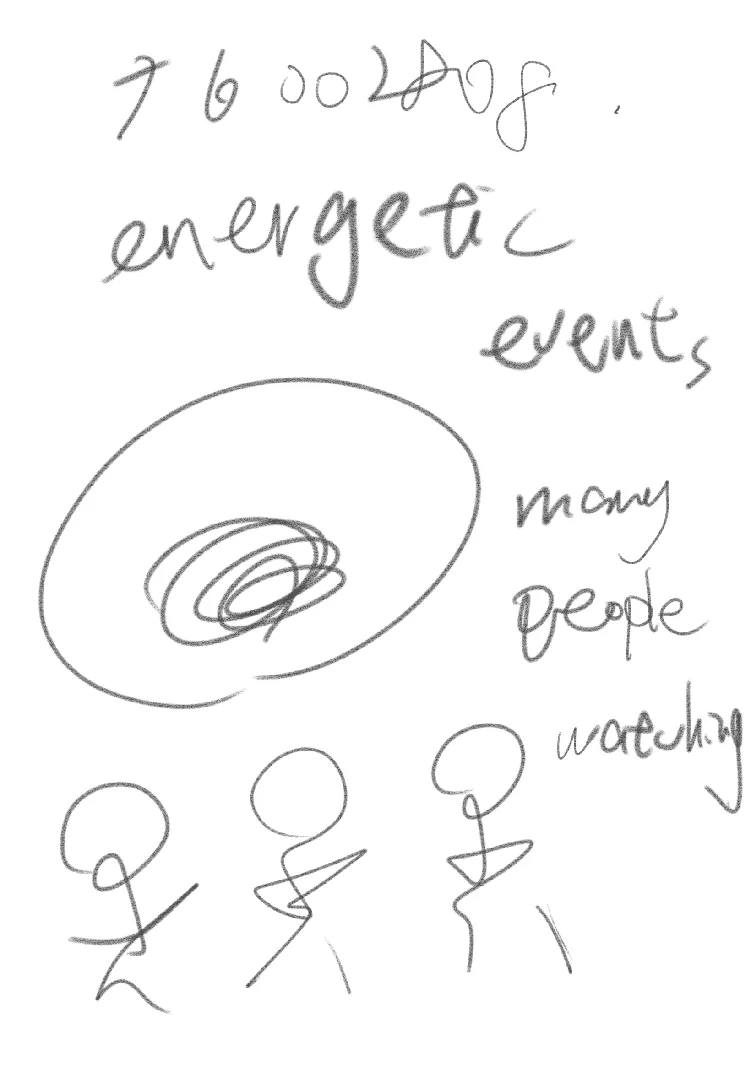 76002808.
energetic
events
many
people
watching